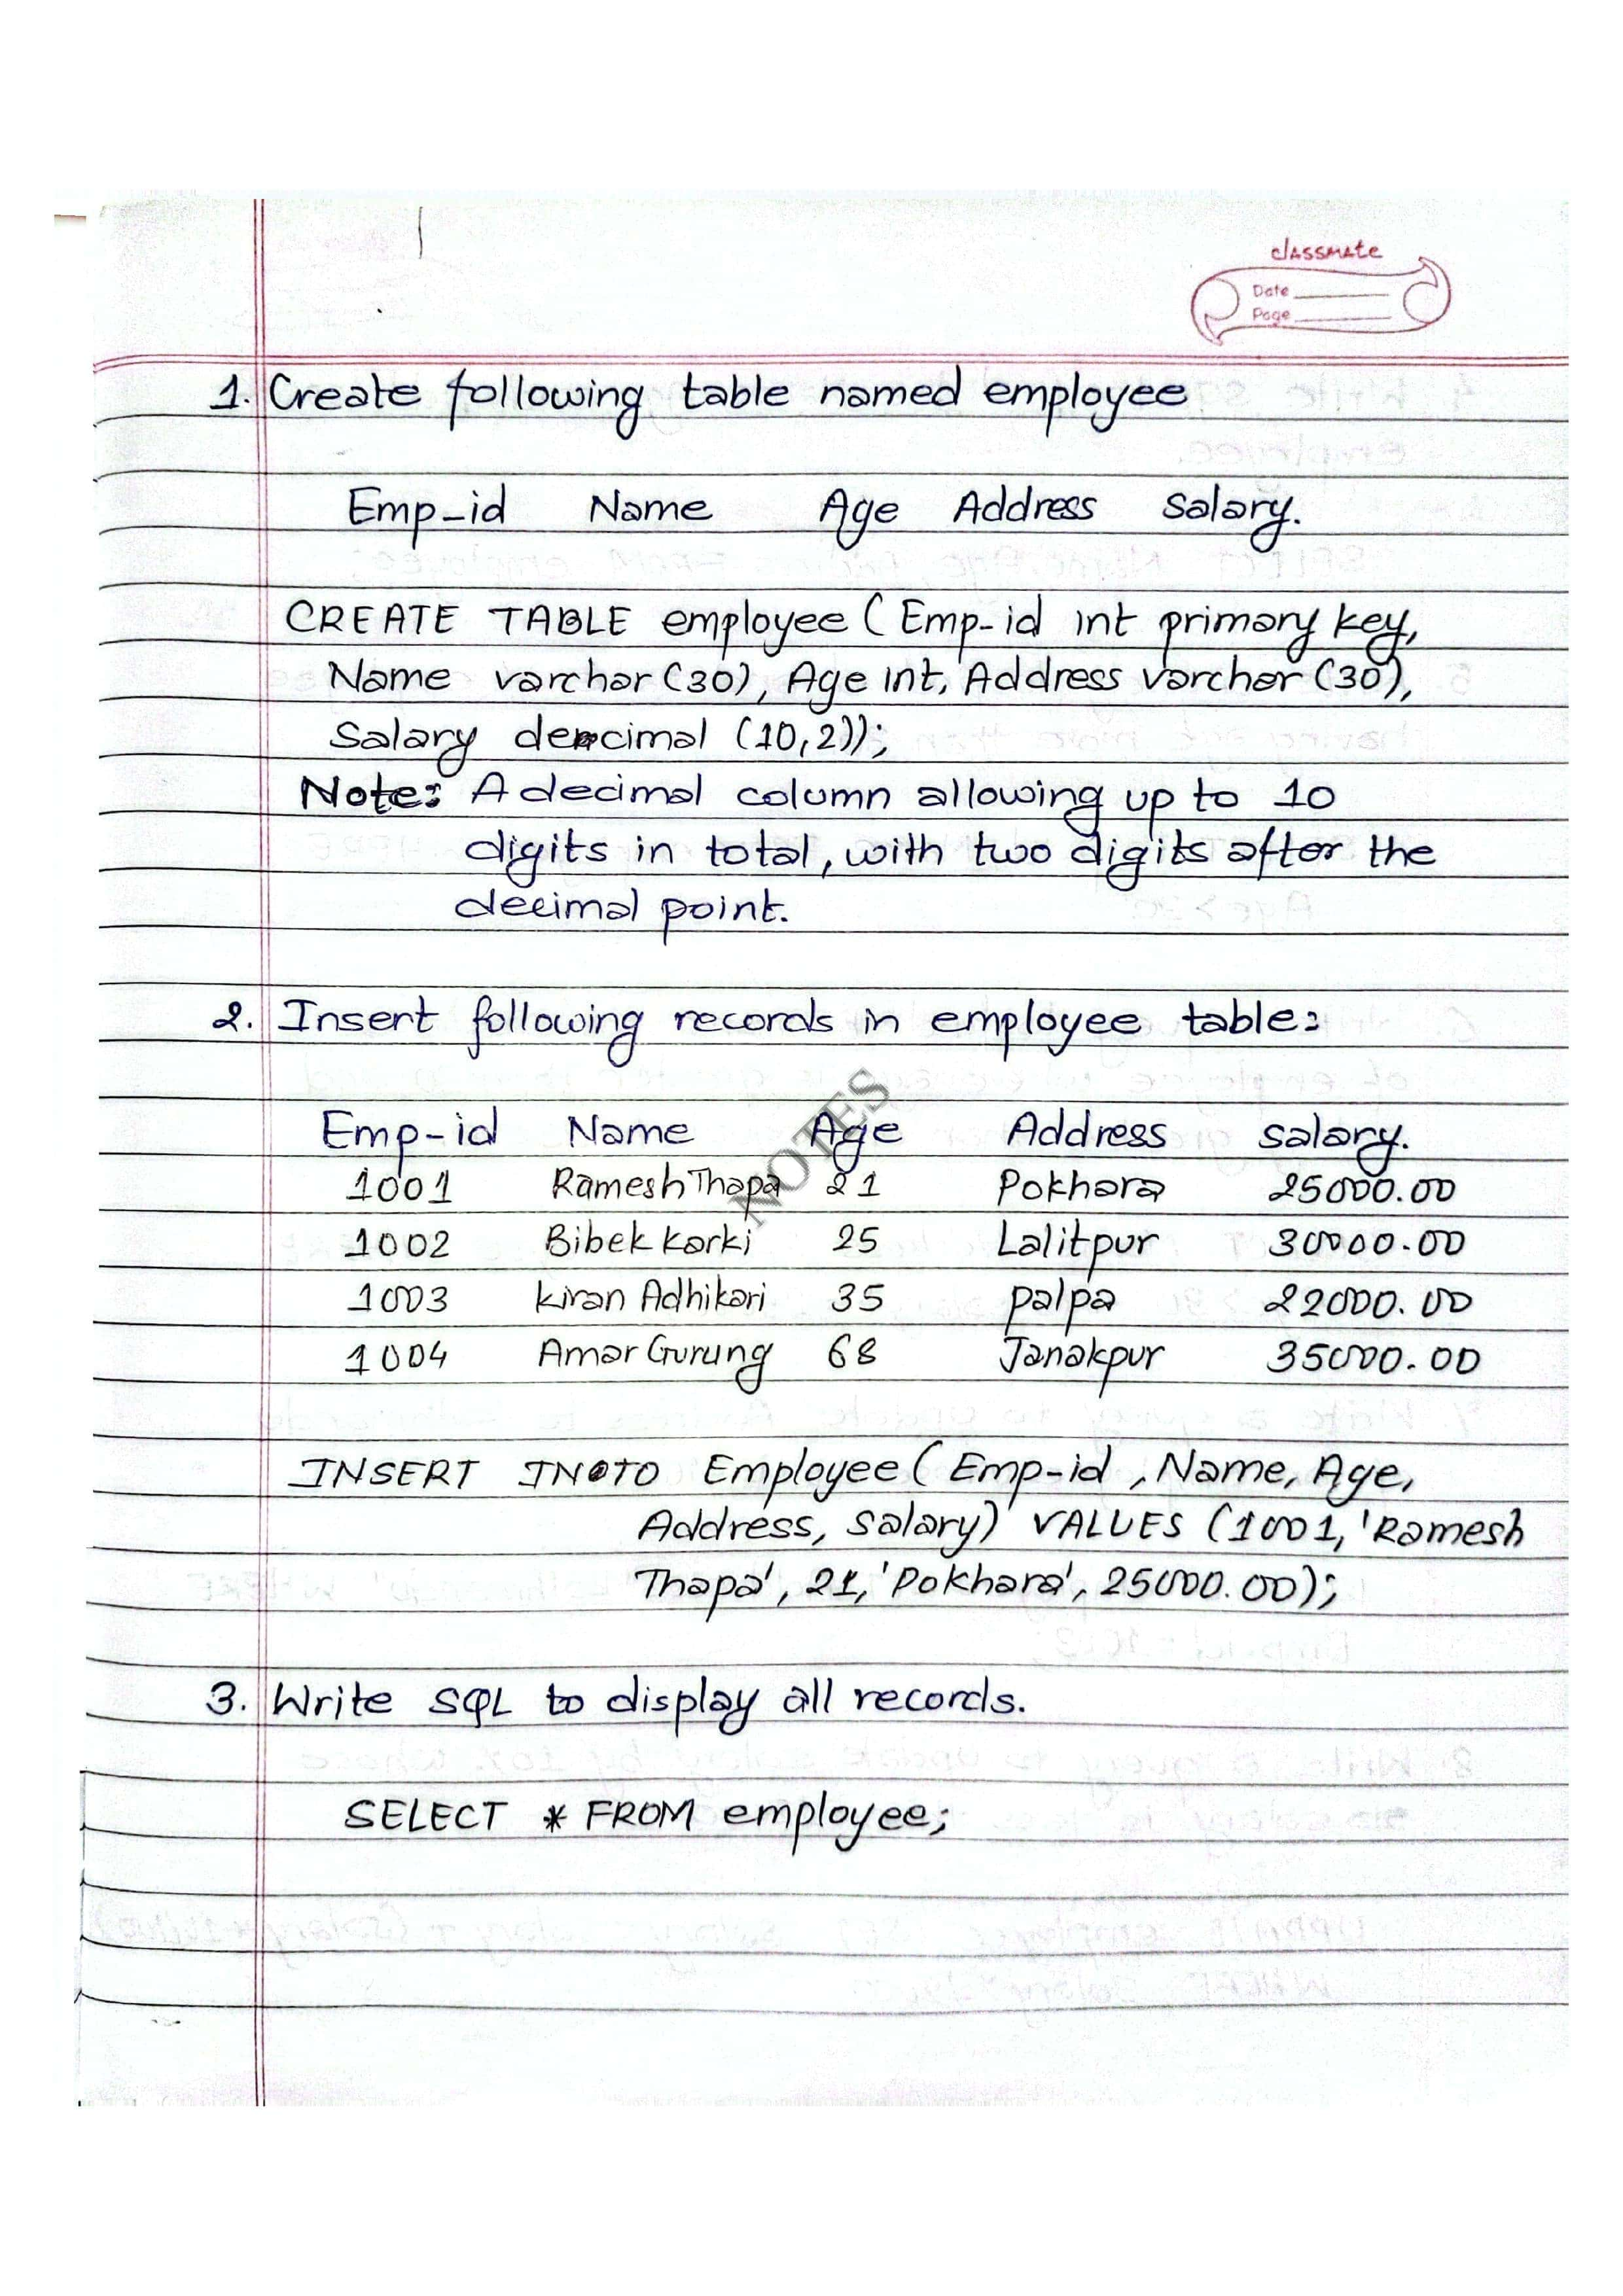 classmate
Date
Page
1. Create following table named employee
Emp-id Name Age Address salary.
CREATE TABLE employee (Emp-id int primary key,
Name varchar (30), Age int, Address varchar (30),
Salary decimal (10,2));
Note: A decimal column allowing up to 10
digits in total, with two digits after the
decimal point.
2. Insert following records in employee table:
Emp-id Name Age Address salary.
1001 Ramesh Thapa 21 Pokhara 25000.00
1002 Bibek karki 25 Lalitpur 30000.00
1003 kiran Adhikari 35 palpa 22000.00
1004 Amar Gurung 68 Janakpur 35000.00
NOTES
INSERT INTO Employee (Emp-id, Name, Age,
Address, salary) VALUES (1001, 'Ramesh
Thapa', 21, 'Pokhara', 25000.00);
3. Write SQL to display all records.
SELECT * FROM employee;